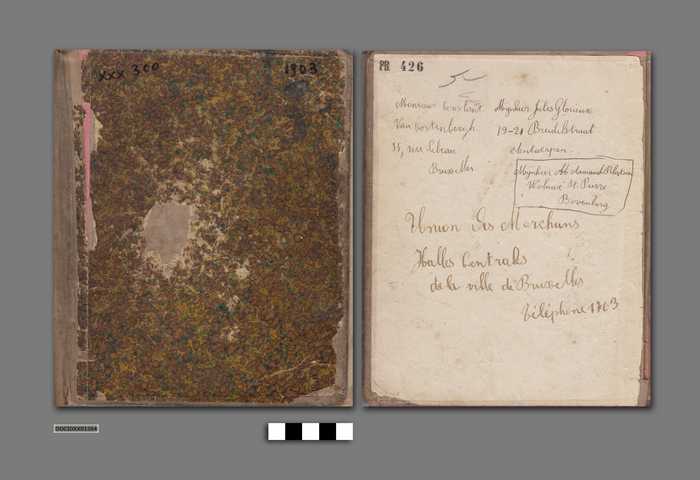 xxx 300
1903
PR 426
Monsieur Constant
Van
35, rue Lebeau
Bruxelles
Mynheer Jules Glorieux
19-21 Breidelstraat
Antwerpen
Mynheer
Woluwe St. Pierre
Bovenberg
Union des Marchans
Halles Centrales
de la ville de Bruxelles
Téléphone 1763
DOCIDXX01084